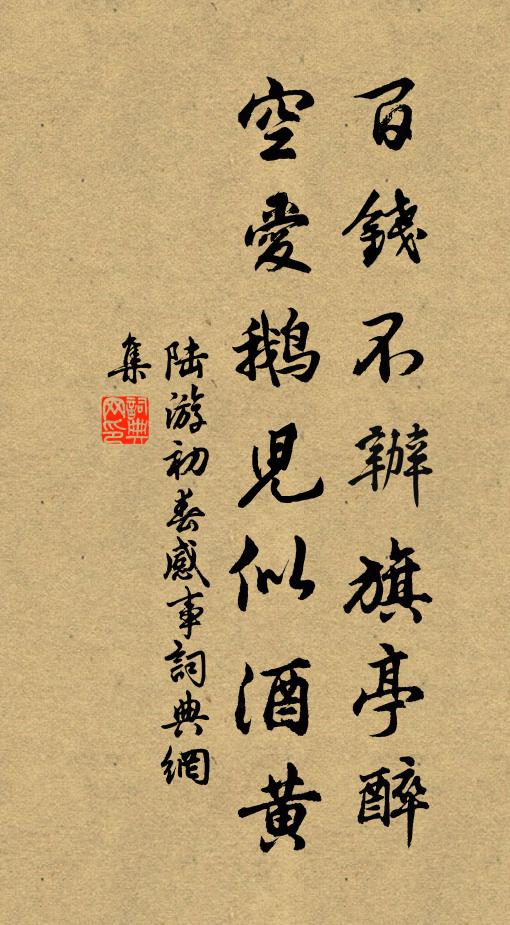 百錢不辦旗亭醉
空愛鵝兒似酒黄
陆游初春感事詞典網
集
詞典网印